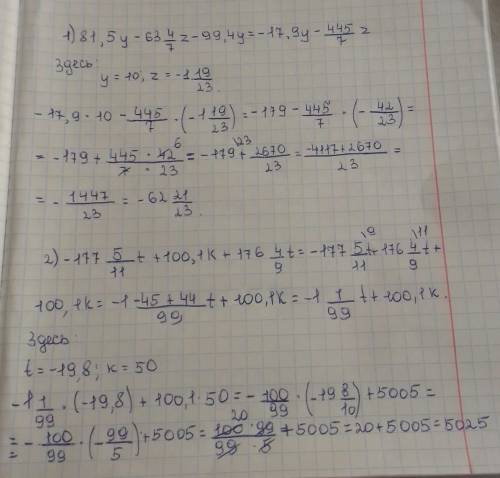 1) 81,5y - 63 4/7 z - 99,4y = -17,9y - 445/7 z
Здесь:
y = 10; z = -1 19/23.
-17,9 · 10 - 445/7 · (-1 19/23) = -179 - 445/7 · (-42/23) =
= -179 + (445 · 42 6)/(7 · 23) = -179 \23 + 2670/23 = (-4117+2670)/23 =
= -1447/23 = -62 21/23.
2) -177 5/11 t + 100,1k + 176 4/9 t = -177 5/11 \9 t + 176 4/9 \11 t +
100,1k = -1 (-45 + 44)/99 t + 100,1k = -1 1/99 t + 100,1k.
Здесь:
t = -19,8; k = 50
-1 1/99 · (-19,8) + 100,1 · 50 = -100/99 · (-19 8/10) + 5005 =
= -100/99 · (-99/5) + 5005 = (20 100 · 99)/(99 · 5) + 5005 = 20 + 5005 = 5025